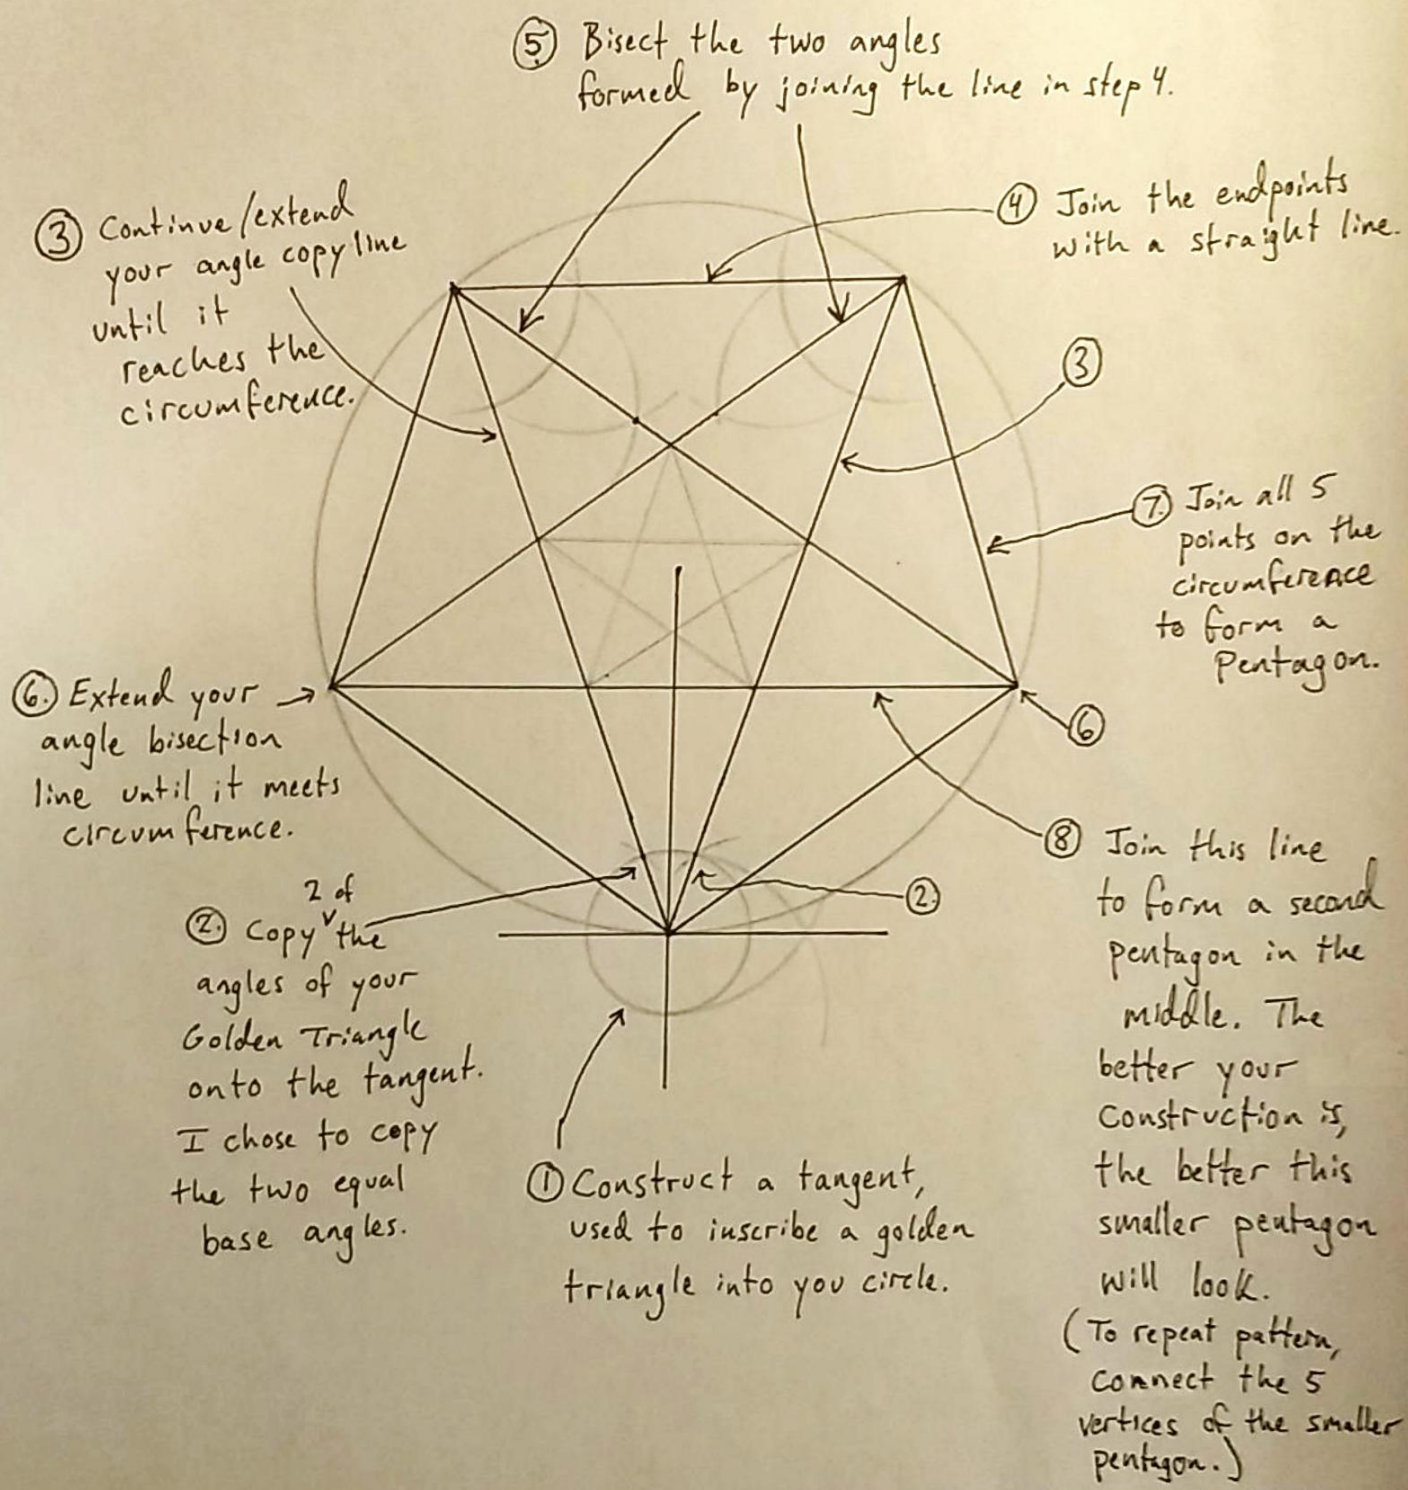 ⑤ Bisect the two angles
formed by joining the line in step 4.
③ Continue/extend
your angle copy line
until it
reaches the
circumference.
④ Join the endpoints
with a straight line.
③
⑦ Join all 5
points on the
circumference
to form a
Pentagon.
⑥ Extend your
angle bisection
line until it meets
circumference.
⑥
② Copy 2 of the
angles of your
Golden Triangle
onto the tangent.
I chose to copy
the two equal
base angles.
②
① Construct a tangent,
used to inscribe a golden
triangle into you circle.
⑧ Join this line
to form a second
pentagon in the
middle. The
better your
construction is,
the better this
smaller pentagon
will look.
(To repeat pattern,
connect the 5
vertices of the smaller
pentagon.)